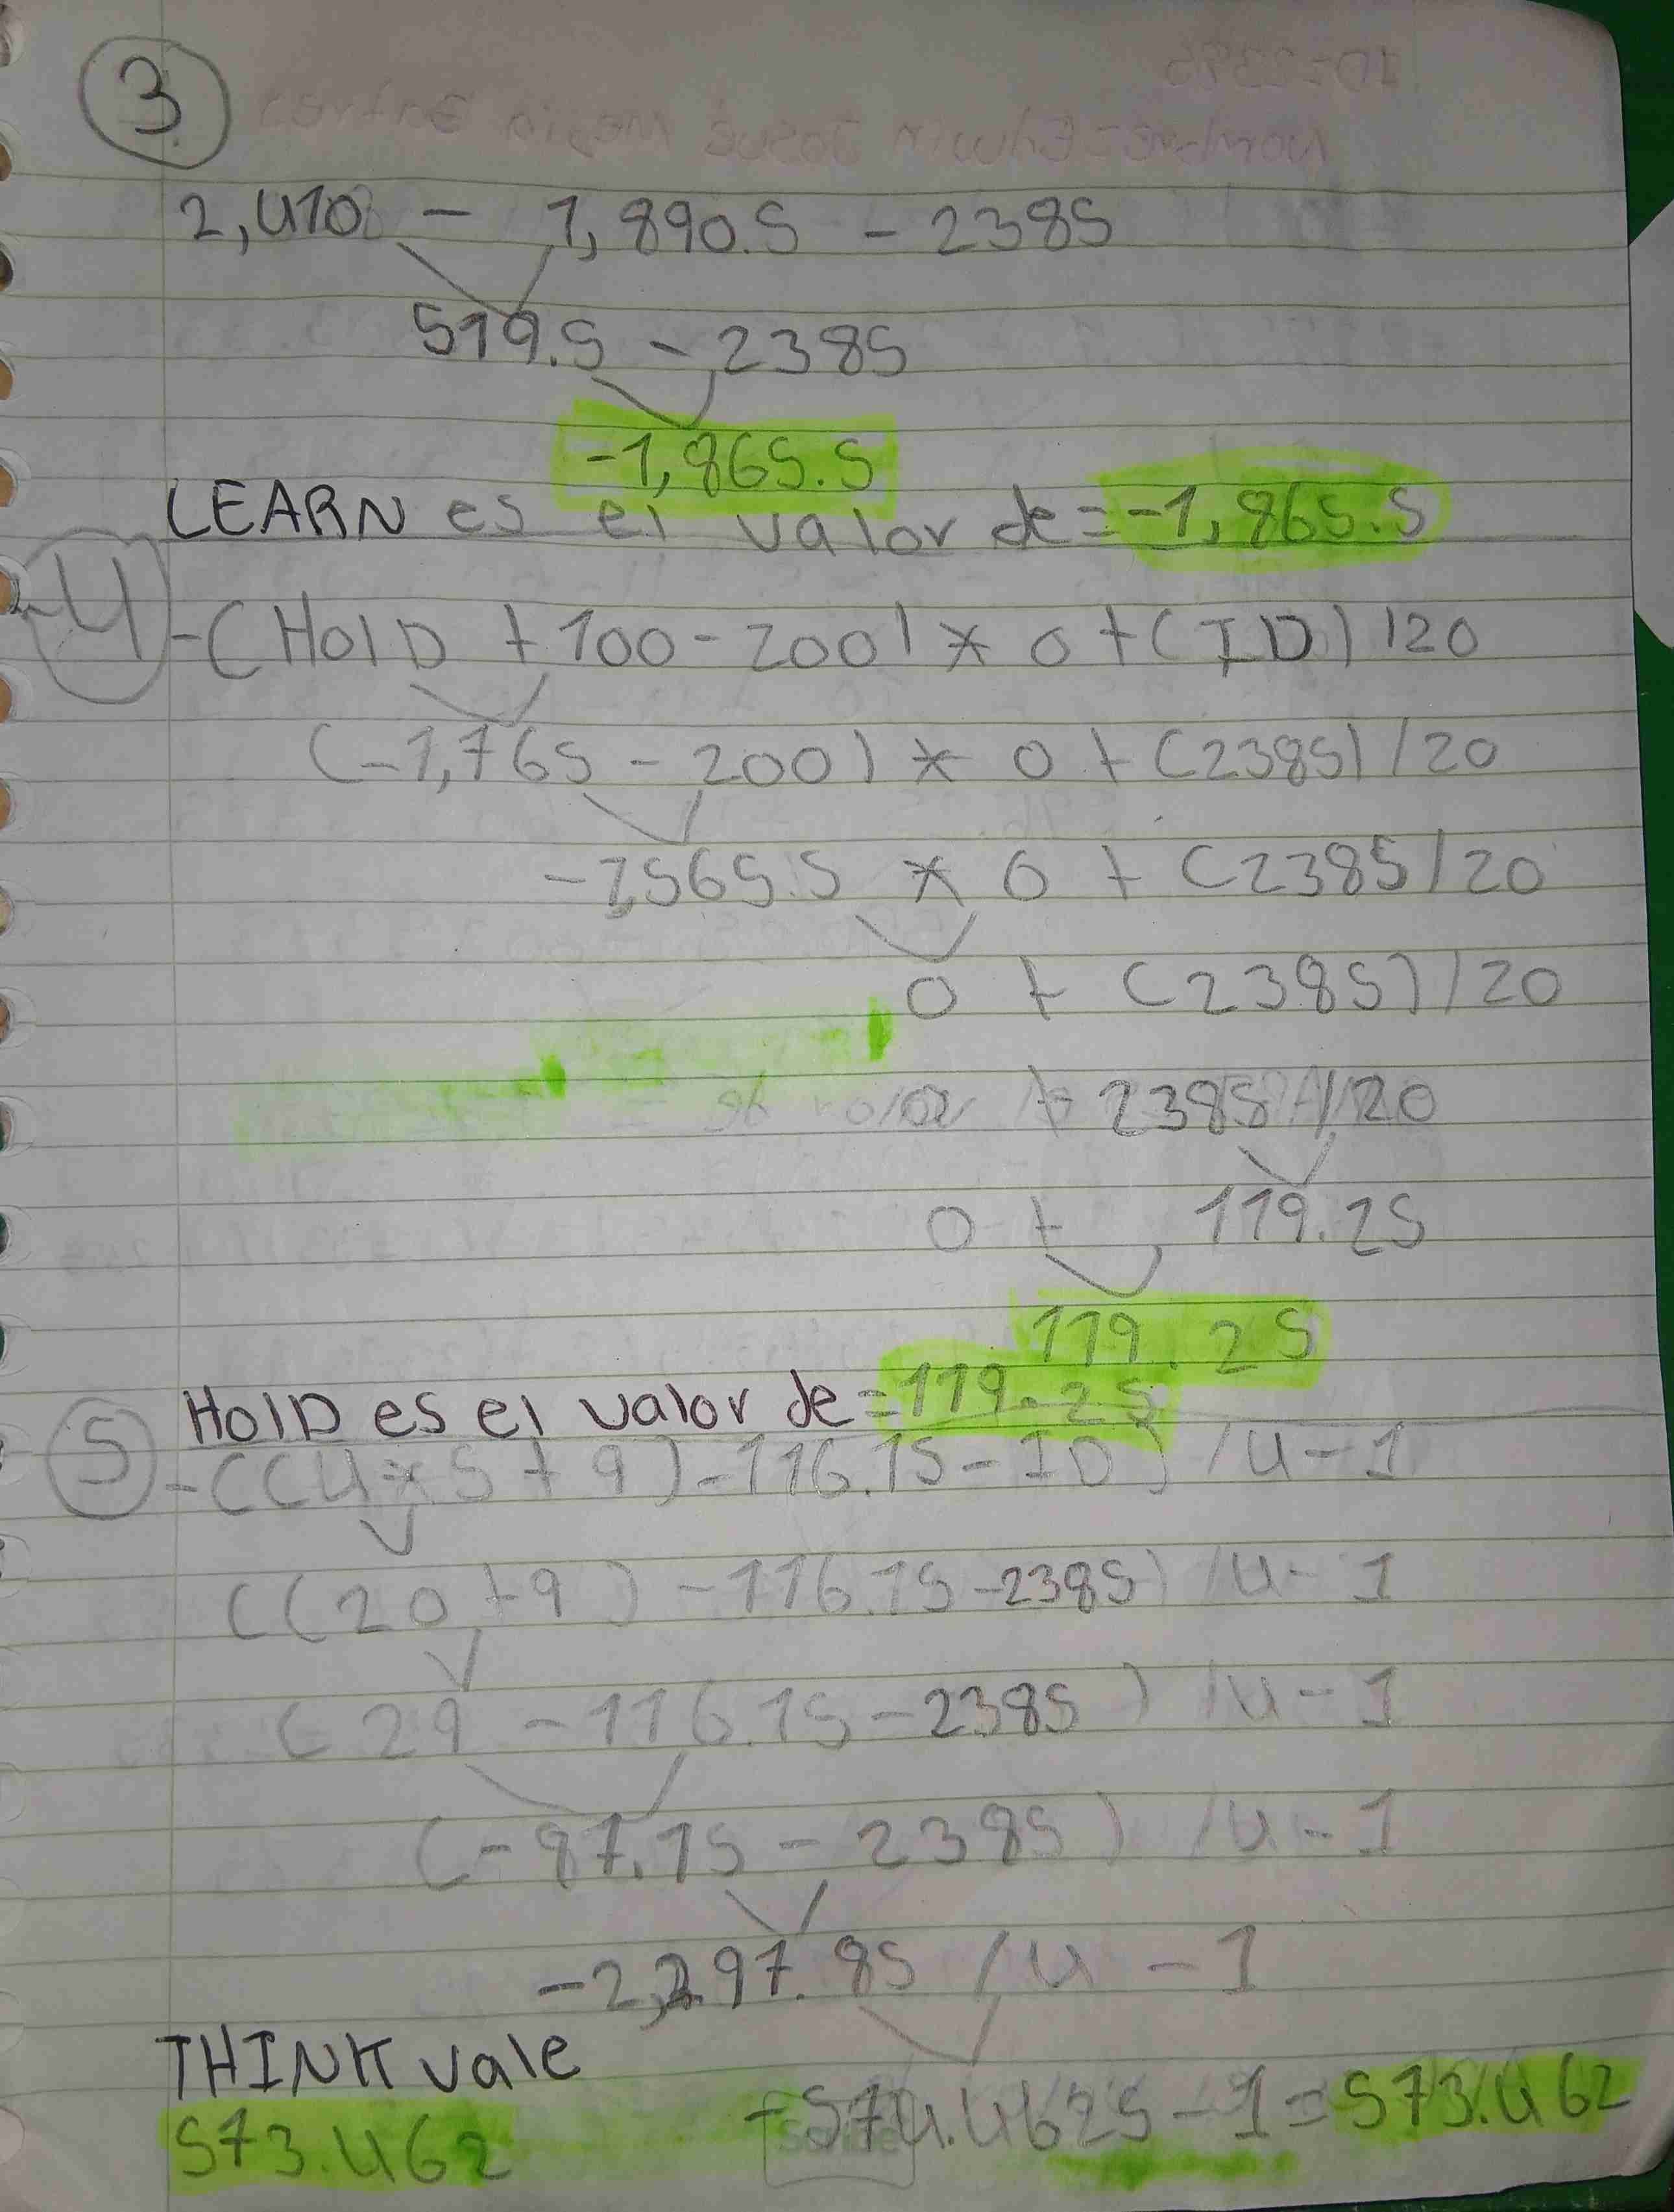 3
2,410 - 1,890.5 - 2385
519.5 - 2385
-1,865.5
LEARN es el valor de = -1,865.5
4 - (HolD + 100 - 200) * 0 + (ID) / 20
(-1,765 - 200) * 0 + (2385) / 20
-1,565.5 * 0 + (2385 / 20
0 + (2385) / 20
+ 2385 / 20
0 + 119.25
119.25
HolD es el valor de = 119.25
5 - ((4 * 5 + 9) - 116.15 - ID) / 4 - 1
((20 + 9) - 116.15 - 2385) / 4 - 1
(29 - 116.15 - 2385) / 4 - 1
(-87.15 - 2385) / 4 - 1
-2,297.85 / 4 - 1
THINK vale
-574.4625 - 1 = 573.462
573.462